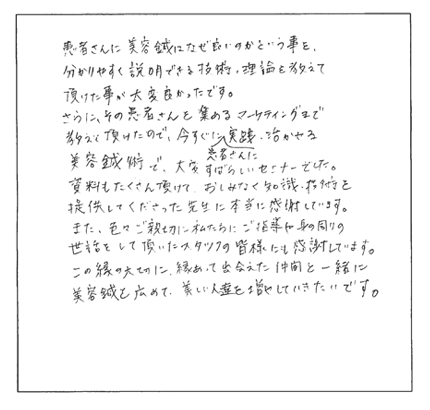 患者さんに美容鍼はなぜ良いのかという事を、
分かりやすく説明できる技術、理論を教えて
頂けた事が大変良かったです。
さらに、その患者さんを集めるマーケティングまで
教えて頂けたので、今すぐに実践、活かせる
患者さんに
美容鍼術で、大変すばらしいセミナーでした。
資料もたくさん頂けて、おしみなく知識、技術を
提供してくださった先生に本当に感謝しています。
また、色々ご親切に私たちにご指導や身の周りの
世話をして頂いたスタッフの皆様にも感謝しています。
この縁の大切に、縁あって出会えた仲間と一緒に
美容鍼を広めて、美しい人達を増やしていきたいです。